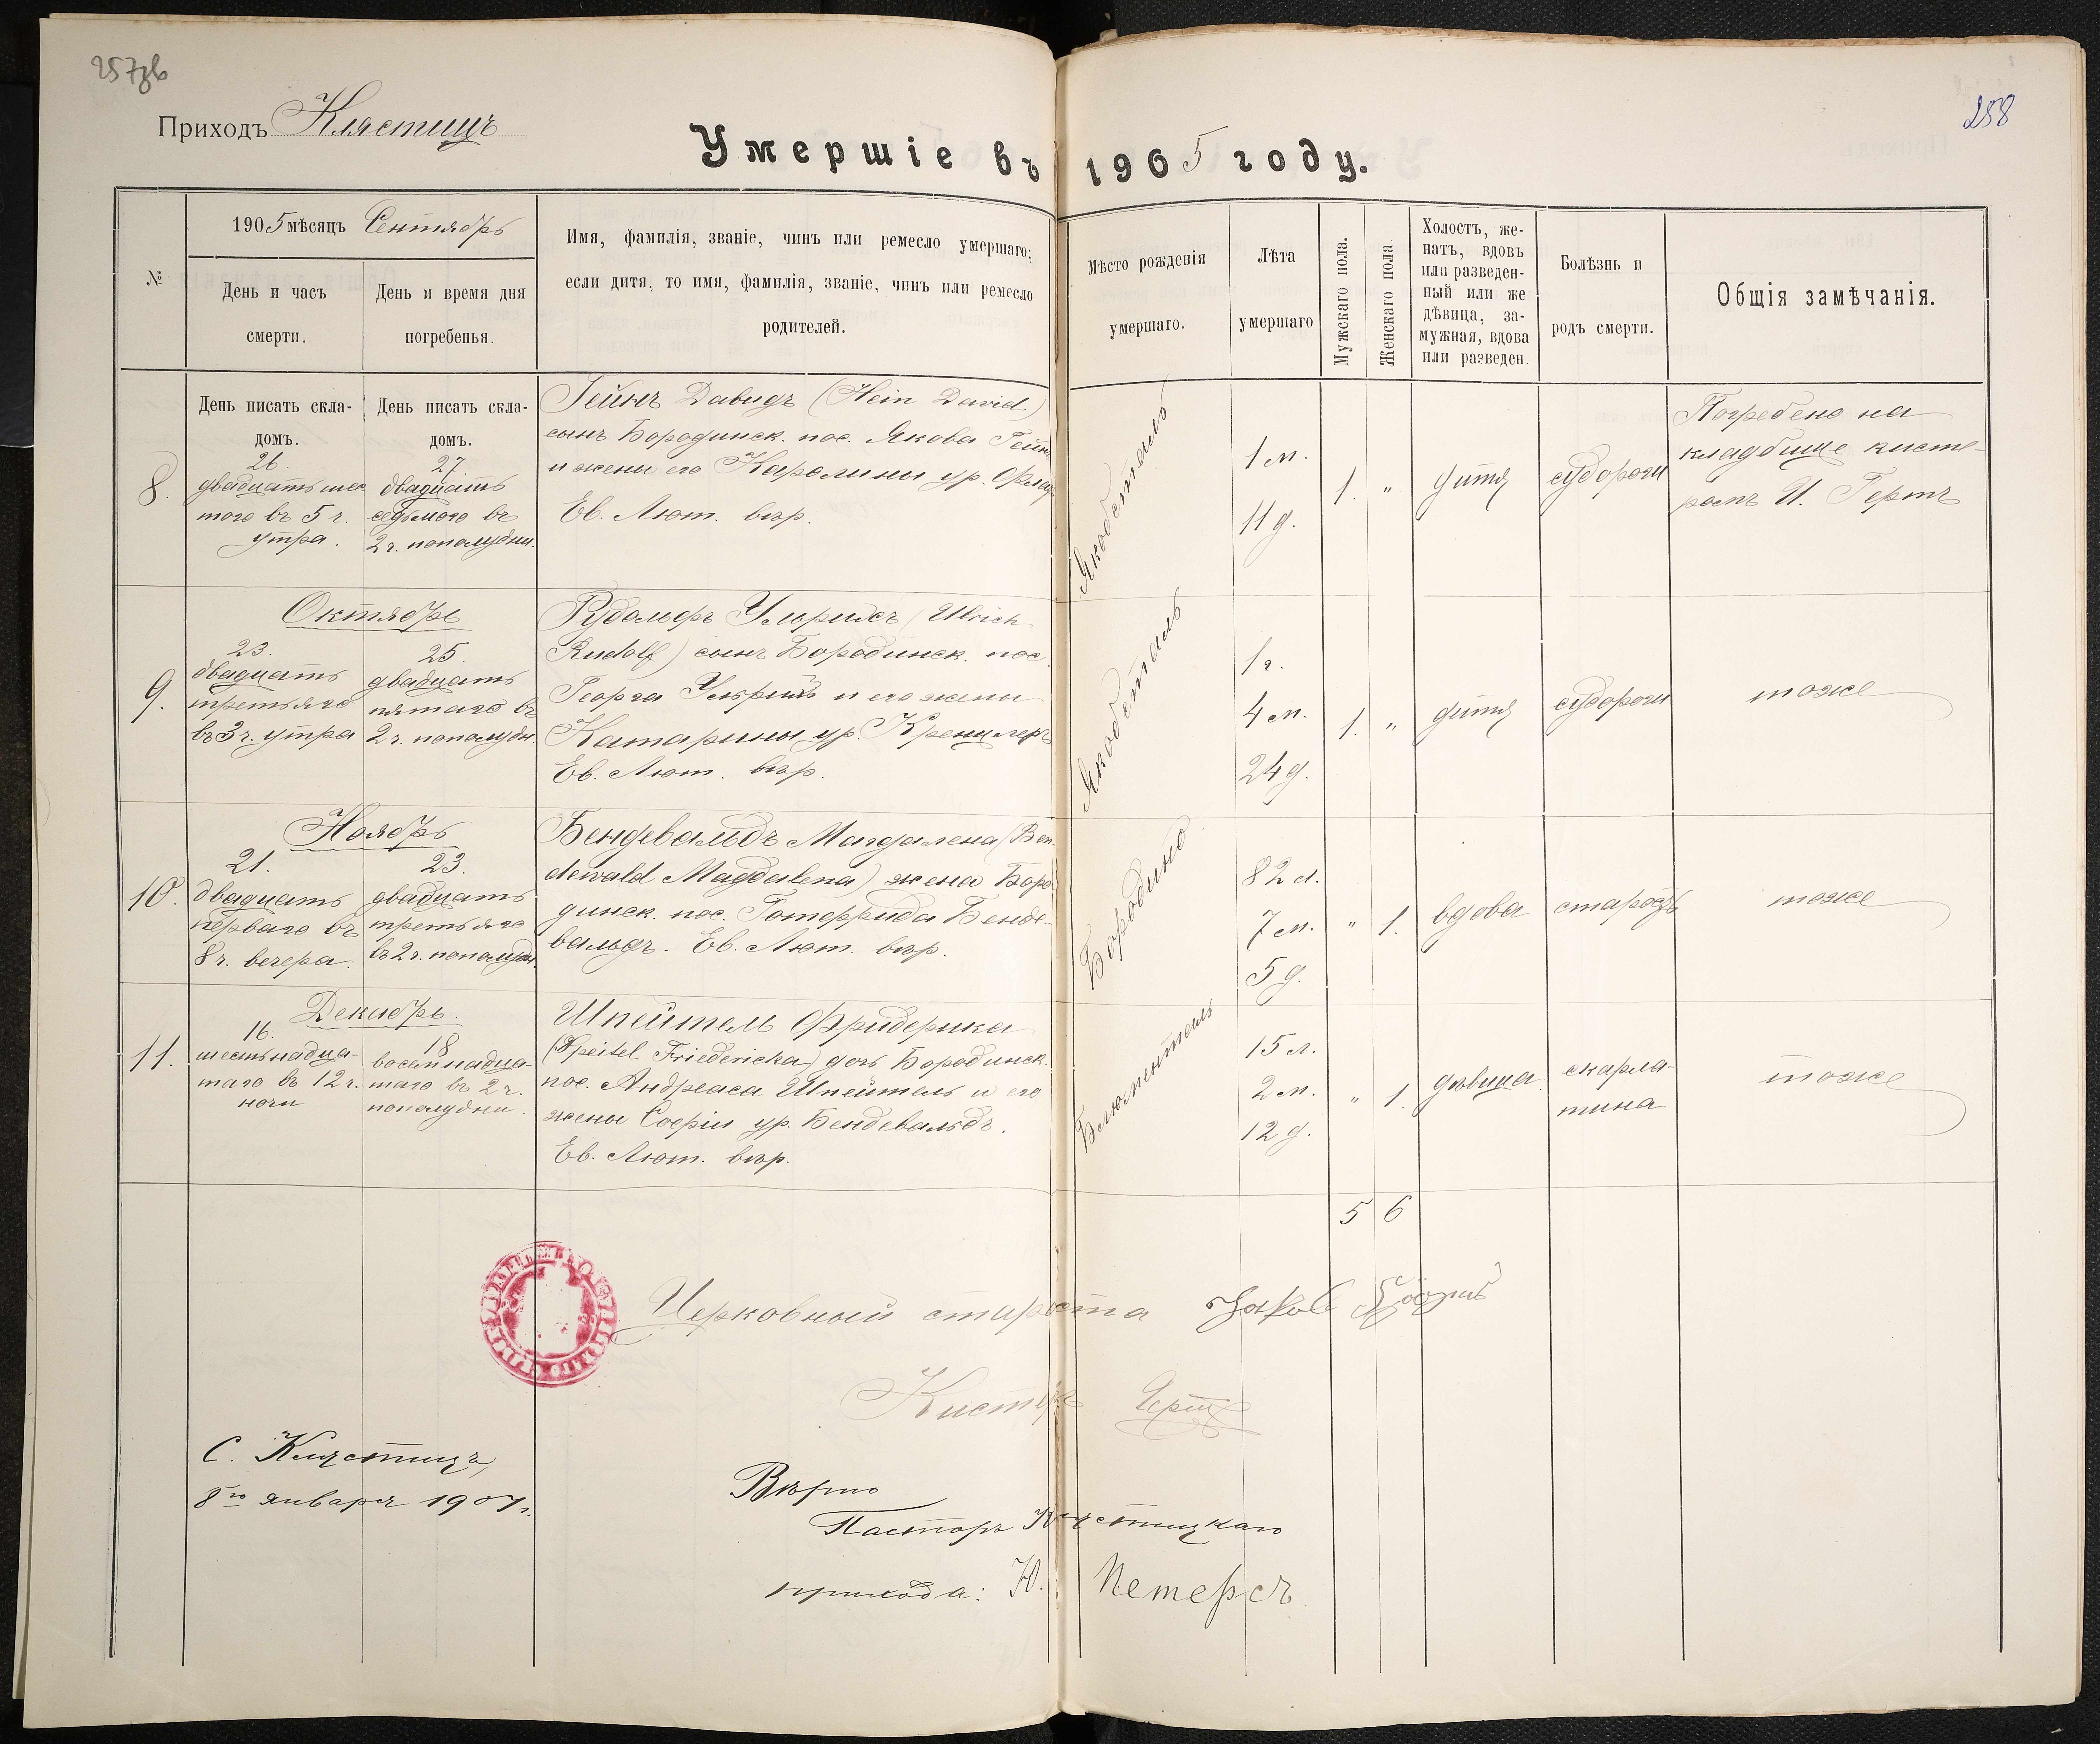 257об
258
Приходъ Клястицъ
Умершіе въ 1905 году.
№
1905 мѣсяцъ Сентябрь
День и часъ
смерти.
День и время дня
погребенья.
Имя, фамилія, званіе, чинъ или ремесло умершаго;
если дитя, то имя, фамилія, званіе, чинъ или ремесло
родителей.
Мѣсто рожденія
умершаго.
Лѣта
умершаго
Мужскаго пола.
Женскаго пола.
Холостъ, же-
натъ, вдовъ
или разведен-
ный или же
дѣвица, за-
мужная, вдова
или разведен.
Болѣзнь и
родъ смерти.
Общія замѣчанія.
День писать скла-
домъ.
День писать скла-
домъ.
8.
26.
двадцать шес
того въ 5 ч.
утра.
27.
двадцать
седьмого въ
2 ч. пополудни.
Гейнъ Давидъ (Hein David.)
сынъ Бородинск. пос. Якова Гейнъ
и жены его Каролины ур.
Ев. Лют. вѣр.
Якобсталь
1 м.
11 д.
1.
"
дитя
судороги
Погребено на
кладбище кисте-
ромъ И. Гертъ
Октябрь
9.
23.
двадцать
третьяго
въ 3 ч. утра
25.
двадцать
пятаго въ
2 ч. пополудн.
Рудольфъ Ульрихъ (Ulrich
Rudolf) сынъ Бородинск. пос.
Георга Ульрихъ и его жены
Катарины ур. Кренцлеръ
Ев. Лют. вѣр.
Якобсталь
1 г.
4 м.
24 д.
1.
"
дитя
судороги
тоже
Ноябрь
10.
21.
двадцать
перваго въ
8 ч. вечера.
23.
двадцать
третьяго
въ 2 ч. пополудн.
Бендевальдъ Магдалена (Ben
dewald Magdalena) жена Боро-
динск. пос. Готфрида Бенде-
вальдъ. Ев. Лют. вѣр.
Бородино
82 л.
7 м.
5 д.
"
1.
вдова
старость
тоже
Декабрь.
11.
16.
шестьнадца-
таго въ 12 ч.
ночи
18
восемнадца-
таго въ 2 ч.
пополудни.
Шпейтель Фридерика
(Speitel Friedericka) дочь Бородинск.
пос. Андреаса Шпейтель и его
жены Софіи ур. Бендевальдъ.
Ев. Лют. вѣр.
Блюменталь
15 л.
2 м.
12 д.
"
1.
дѣвица
скарла-
тина
тоже
5 6
Церковный староста Яковъ
Кистеръ Гертъ
С. Клястицъ,
8го января 1907 г.
Вѣрно
Пасторъ Клястицкаго
прихода: Ю. Петерсъ.